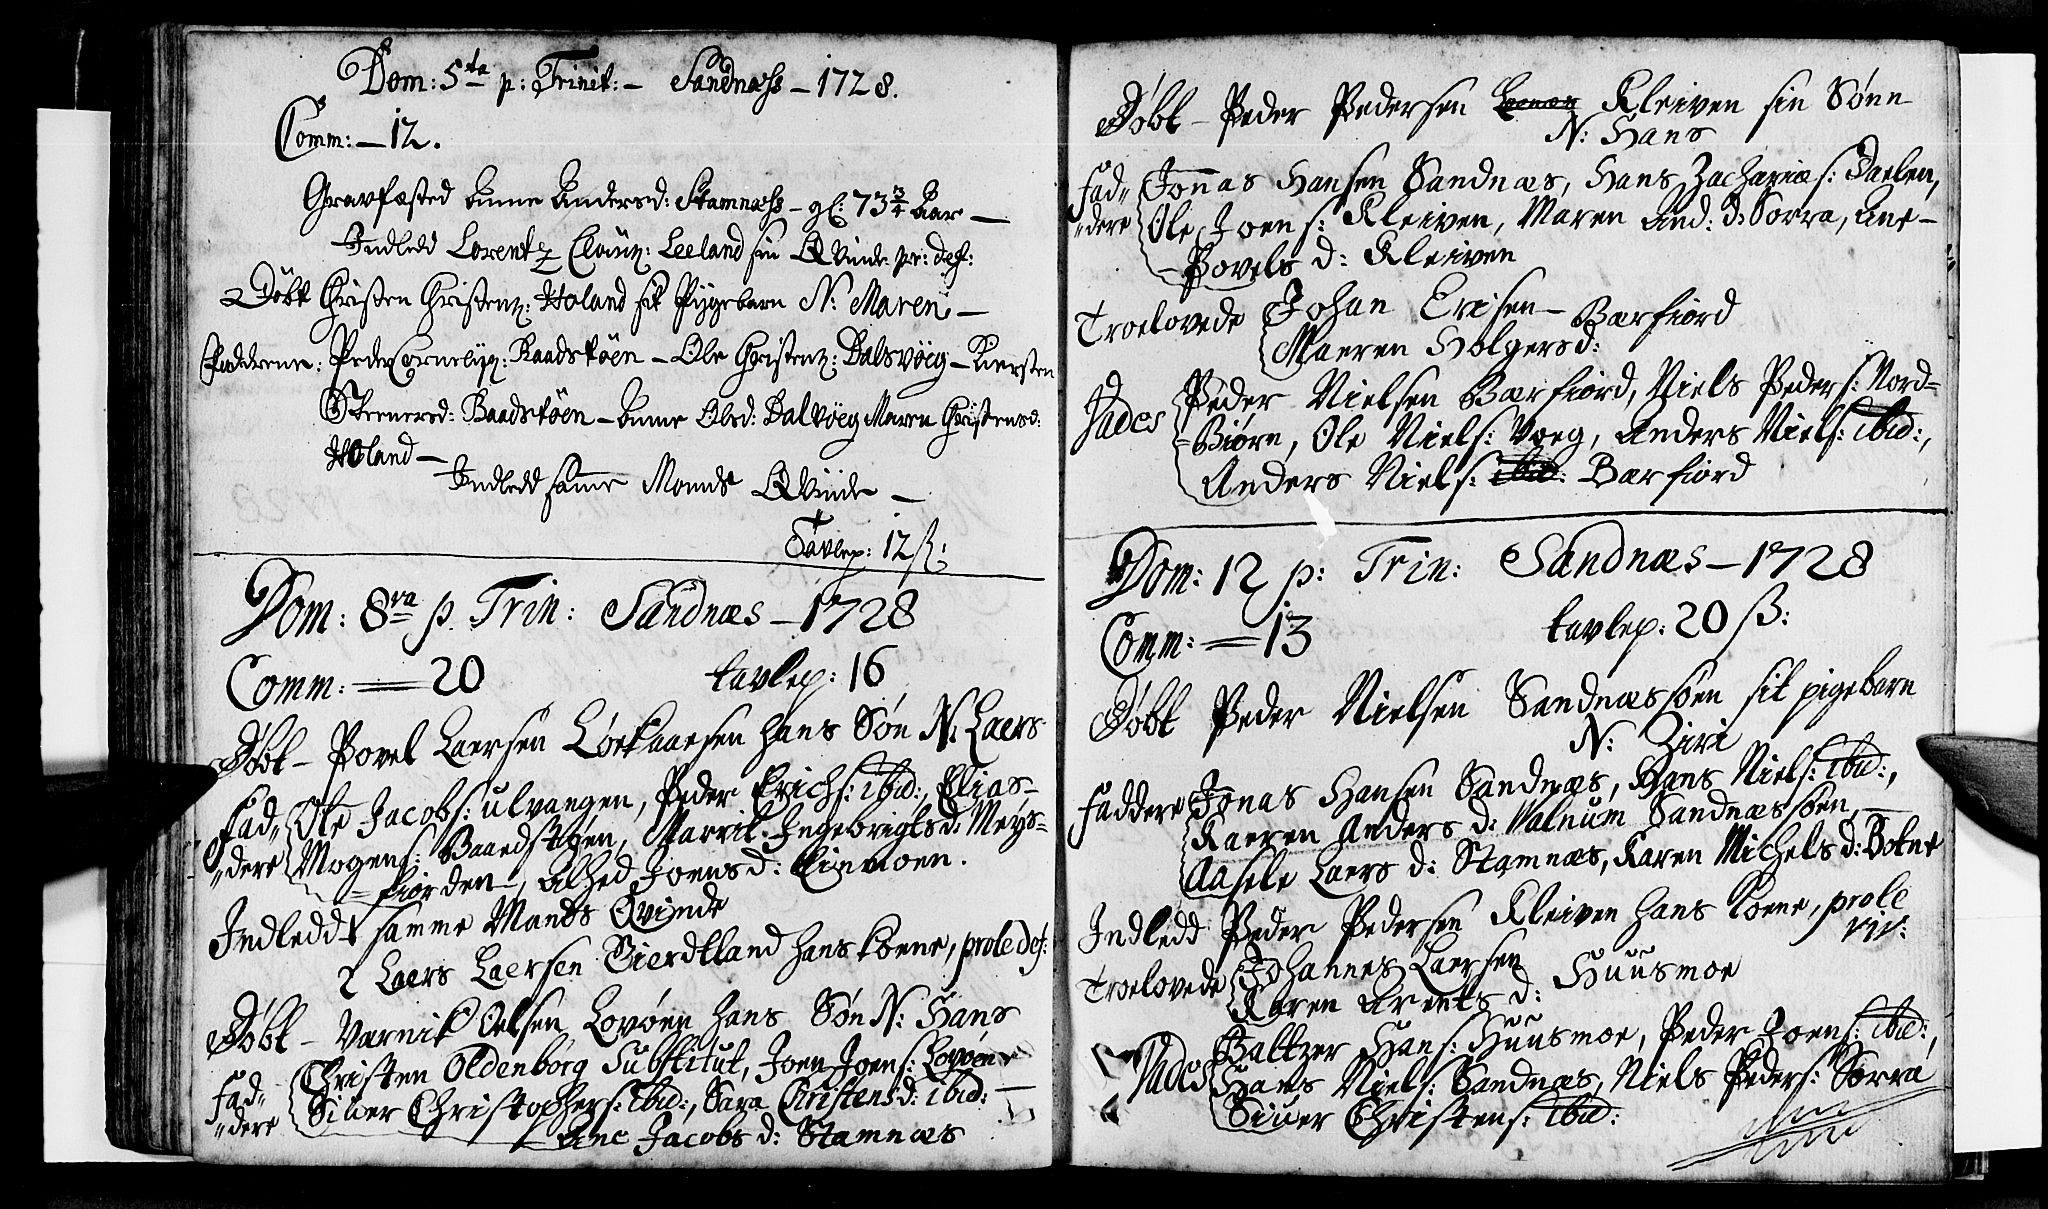 Dom: 5ta p: Trinit: – Sandnæss – 1728.
Comm: – 12.
Gravfæsted Anne Andersd: Stamnæss – gl: 73 3/4 Aar –
Indledd Lorentz Clauß: Leeland sin Qvinde pr: def:
Döbt Christen Christenß: Holand sit Pygebarn N: Maren –
Fadderne: Peder Cornelyß: Baadstöen – Ole Christenß: Dalsvoeg – Kiersten
Baadstöen – Anne Olsd: Dalvoeg Maren Christensd:
Holand –
Indledd samme Mands Qvinde –
Tavlep: 12 ß:
Dom: 8va p. Trin: Sandnæs – 1728
Comm: = 20 tavlep: 16
Døbt – Povel Laersen Løekaaesen hans Søn N: Laers
Fad= Ole Jacobs: ulvangen, Peder Erichs: ibid:, Elias –
=dere Mogens: Baadstøen, Marrit Ingebrigts d: Meys=
=fiorden, Alhed Joens d: Einmoen.
Indledd samme Mands Qvinde
2 Laers Laersen Bierdtland hans Koene, prole def:
Døbt – Varnik Oelsen Lovøen hans Søn N: Hans
Christen Oldenborg Substitut, Joen Joens: Lovøen
Fad= Siuer Christophers: ibid:, Sara Christens d: ibid: –
=dere Ane Jacobs d: Stamnæs
Døbt – Peder Pedersen Kleiven sin Sønn
N: Hans
Fad= Jonas Hansen Sandnæs, Hans Zachariæs: Daelen,
=dere Ole Joens: Kleiven, Maren And: d: Sorra, Ane –
– Povels d: Kleiven
Troelovede Johan Erisen – Bærfiord
Maeren Holgersd:
Peder Nielsen Bærfiord, Niels Peders: Nord=
Vades =Biørn, Ole Niels: Voeg, Anders Niels: ibid:,
Anders Niels: ibid: Bærfiord
Dom: 12 p: Trin: Sandnæs – 1728
Comm: = 13 tavlep: 20 ß:
Døbt Peder Nielsen Sandnæssøen sit pigebarn
N: Ziri
Faddere Jonas Hansen Sandnæs, Hans Niels: ibid:,
Kaeren Anders d: Valnum Sandnæssøen, –
Aasele Laers d: Stamnæs, Karen Michels d: Botne
Indledd Peder Pedersen Kleiven hans Koene, prole
viv:
Troelovede Johannes Laersen Huusmoe
Karen Arents d:
Baltzer Hans: Huusmoe, Peder Joens: ibid:,
Vades Hans Niels: Sandnæs, Niels Peders: Sorra
Siuer Christens: ibid: